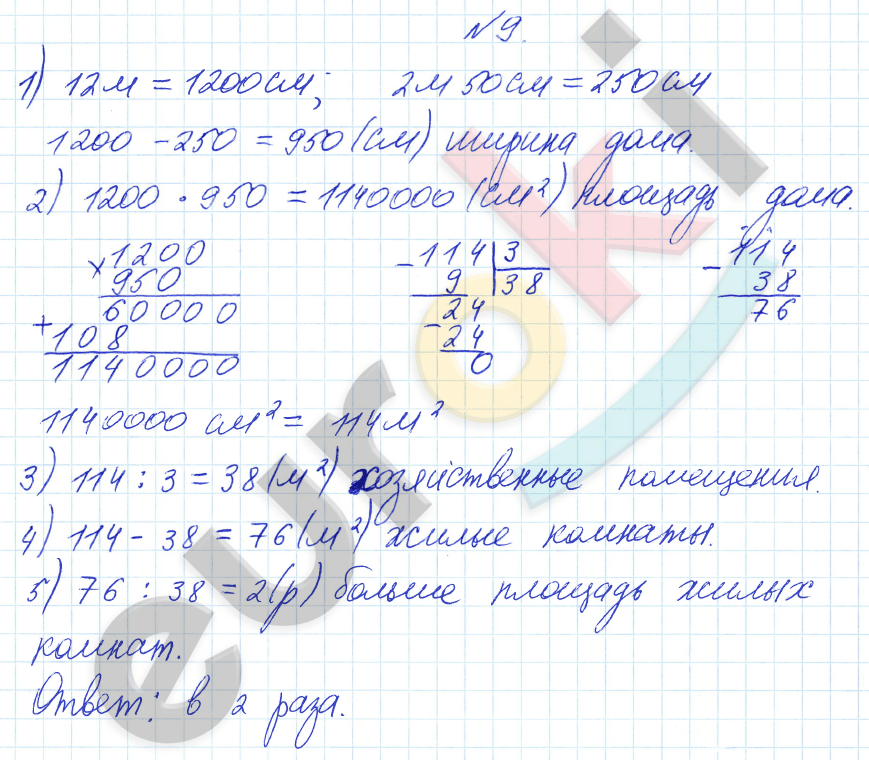 № 9.
1) 12м = 1200см; 2м 50см = 250см
1200 - 250 = 950 (см) ширина дома.
2) 1200 · 950 = 1140000 (см²) площадь дома.
× 1200
950
60000
+ 108
1140000
- 114 | 3
9 | 38
- 24
24
0
- 114
38
76
1140000 см² = 114м²
3) 114 : 3 = 38 (м²) хозяйственные помещения.
4) 114 - 38 = 76 (м²) жилые комнаты.
5) 76 : 38 = 2 (р) больше площадь жилых
комнат.
Ответ: в 2 раза.
euroki